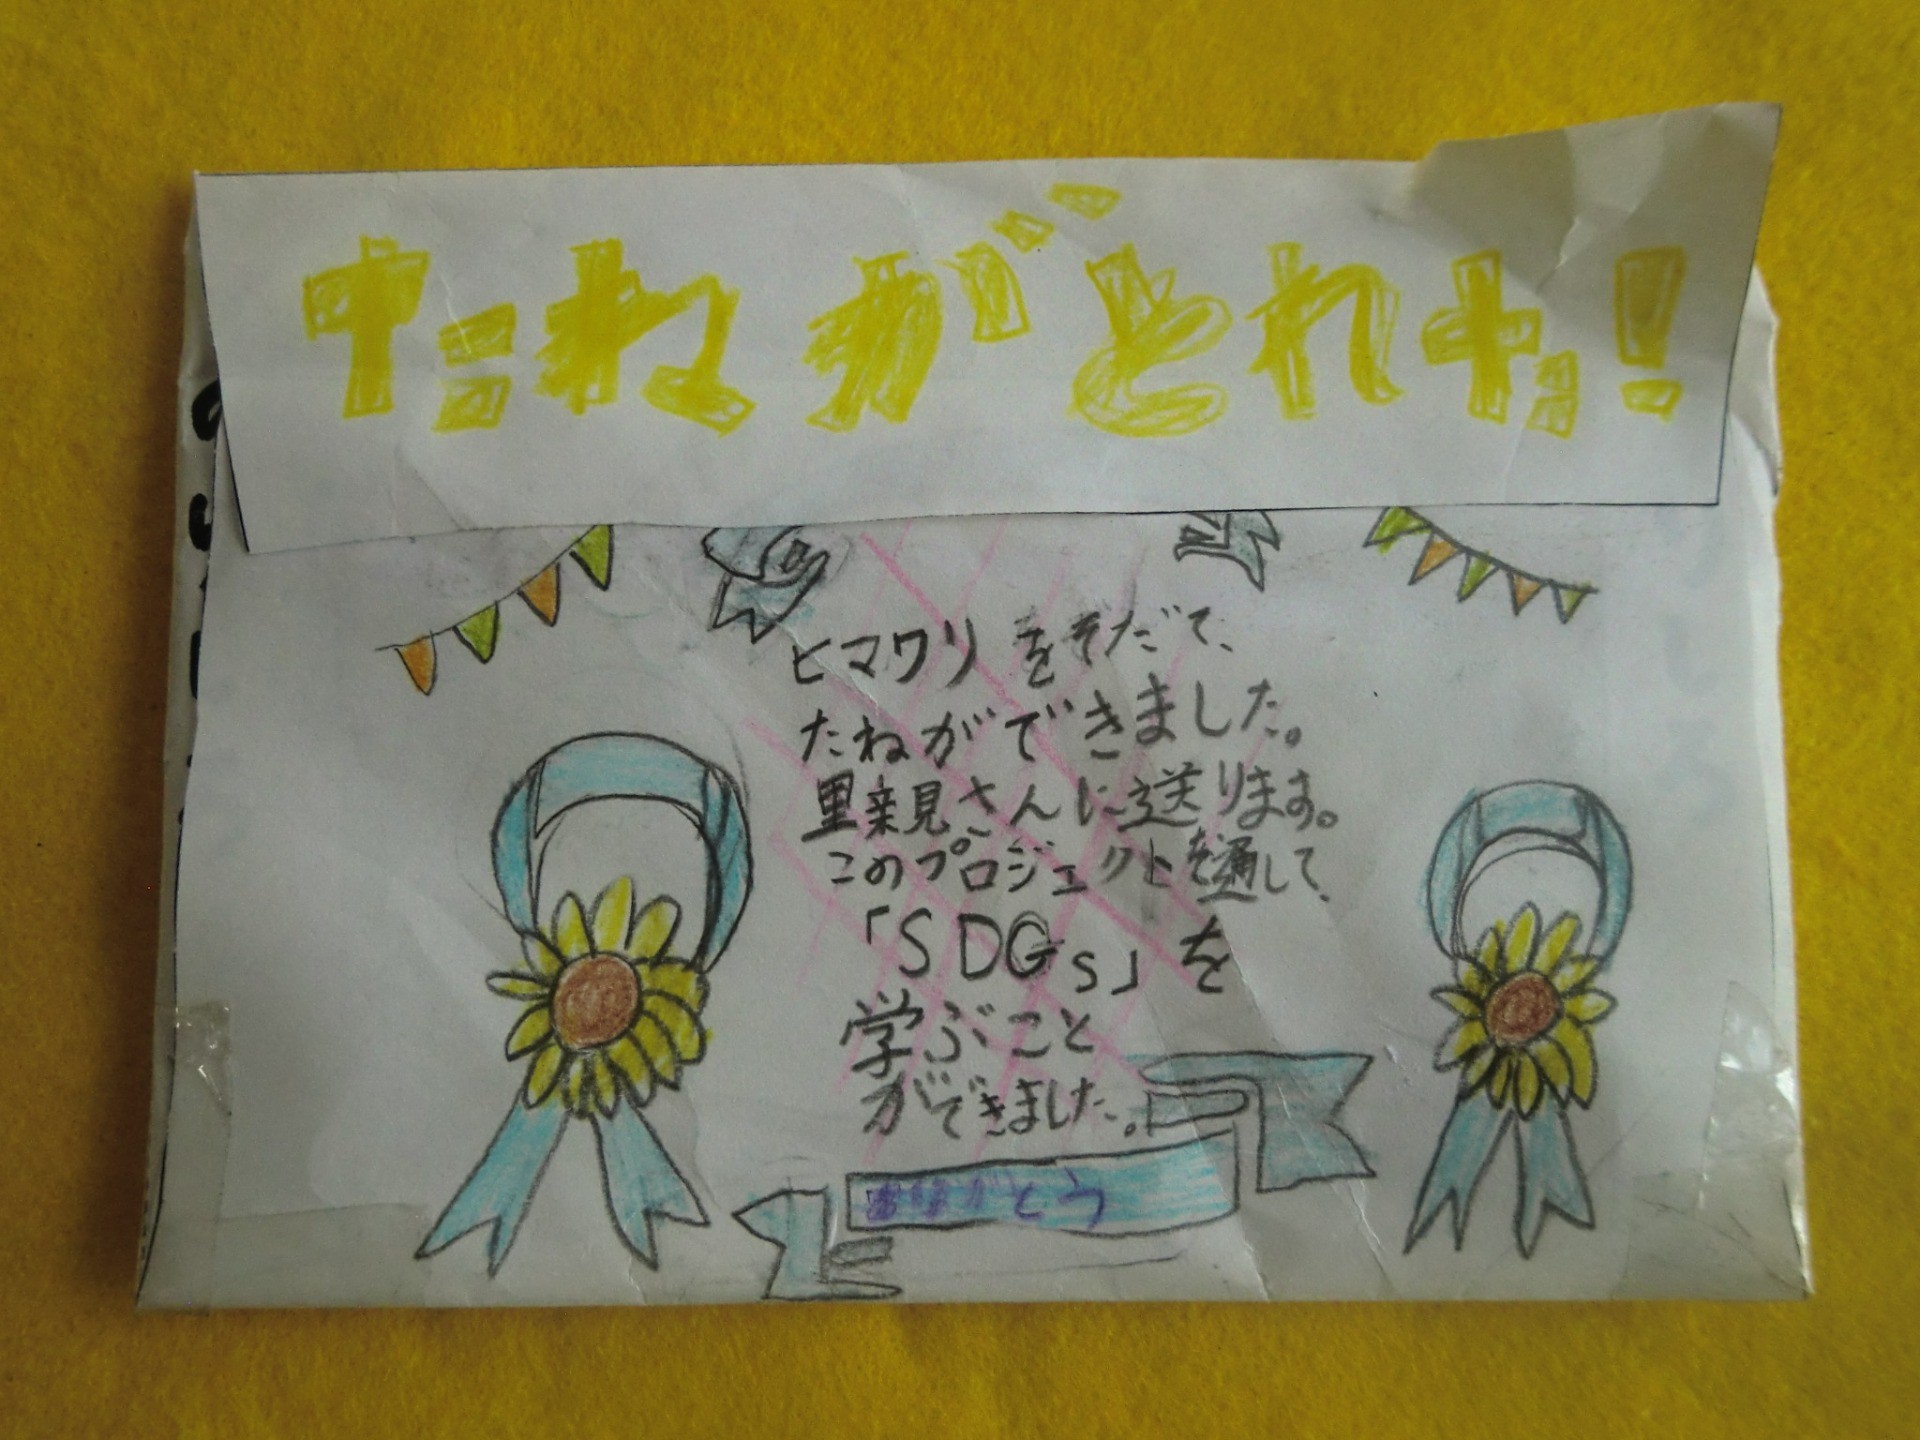 たねがとれた!
ヒマワリをそだて、
たねができました。
里親見さんに送ります。
このプロジェクトを通して、
「SDGs」を
学ぶこと
ができました。
ありがとう